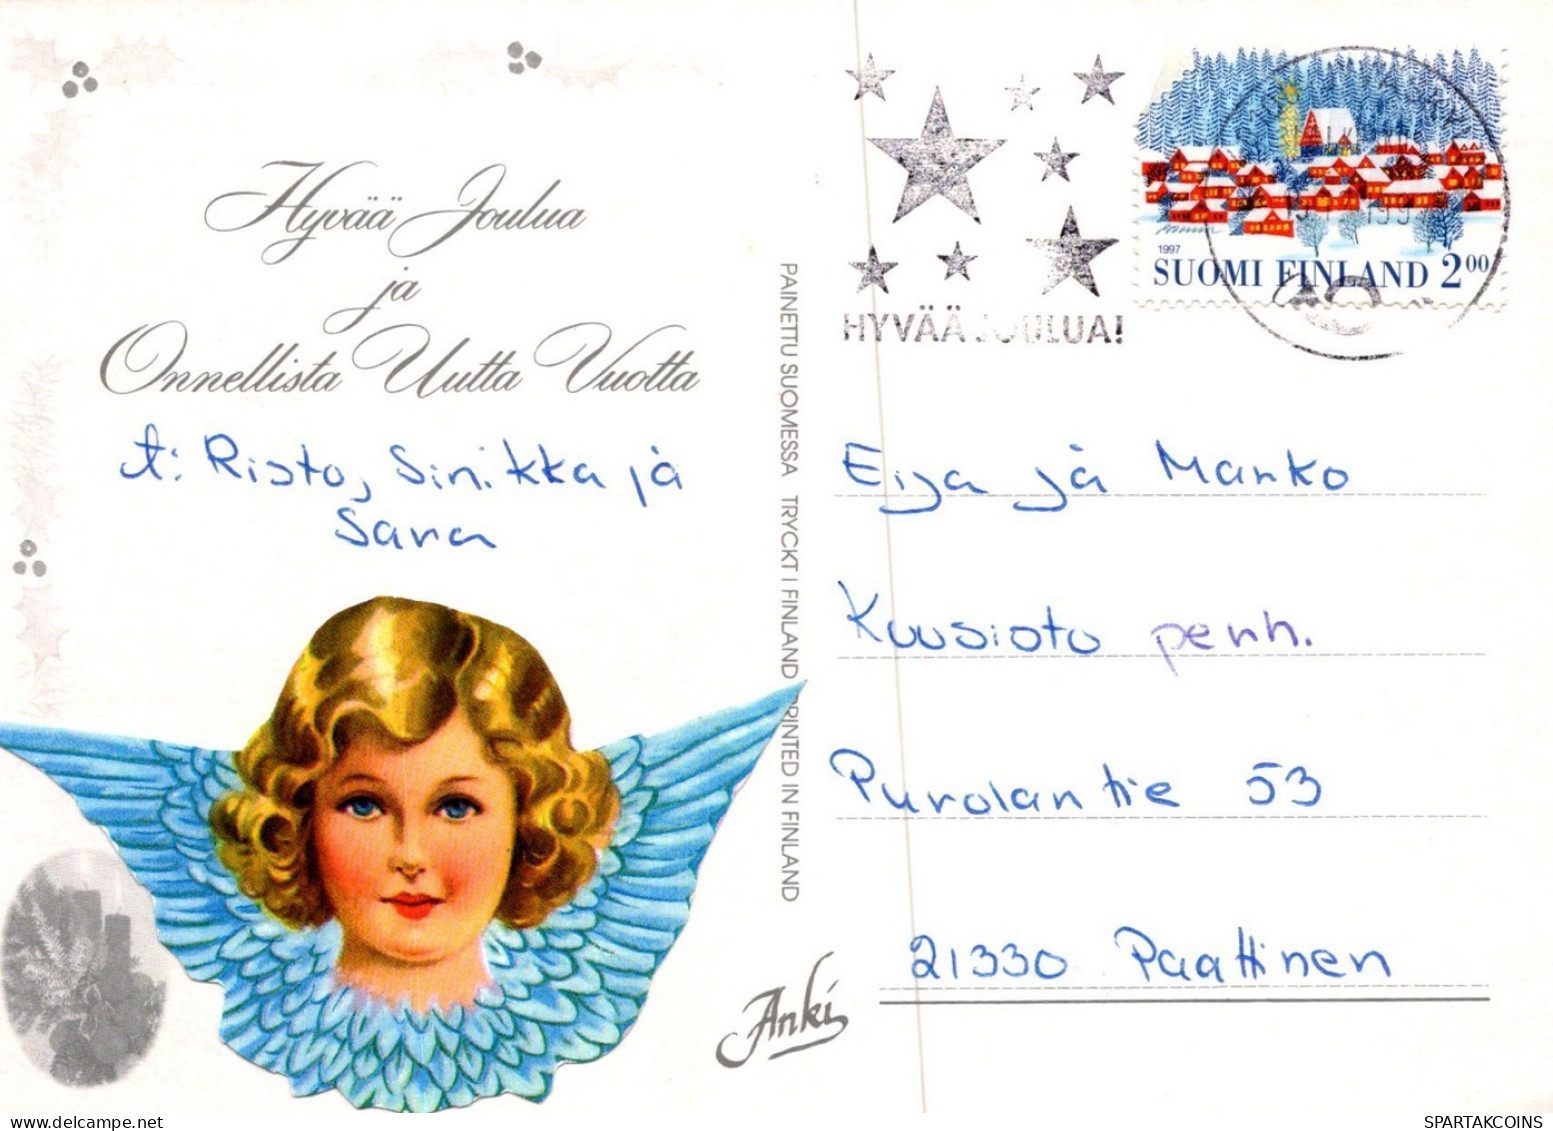 Hyvää Joulua
ja
Onnellista Uutta Vuotta
t: Risto, Sinikka ja
Sara
PAINETTU SUOMESSA TRYCKT I FINLAND PRINTED IN FINLAND
Anki
HYVÄÄ JOULUA!
1997
SUOMI FINLAND 2⁰⁰
Eija ja Marko
Kuusisto penh.
Purolantie 53
21330 Paattinen
SPARTAKCOINS